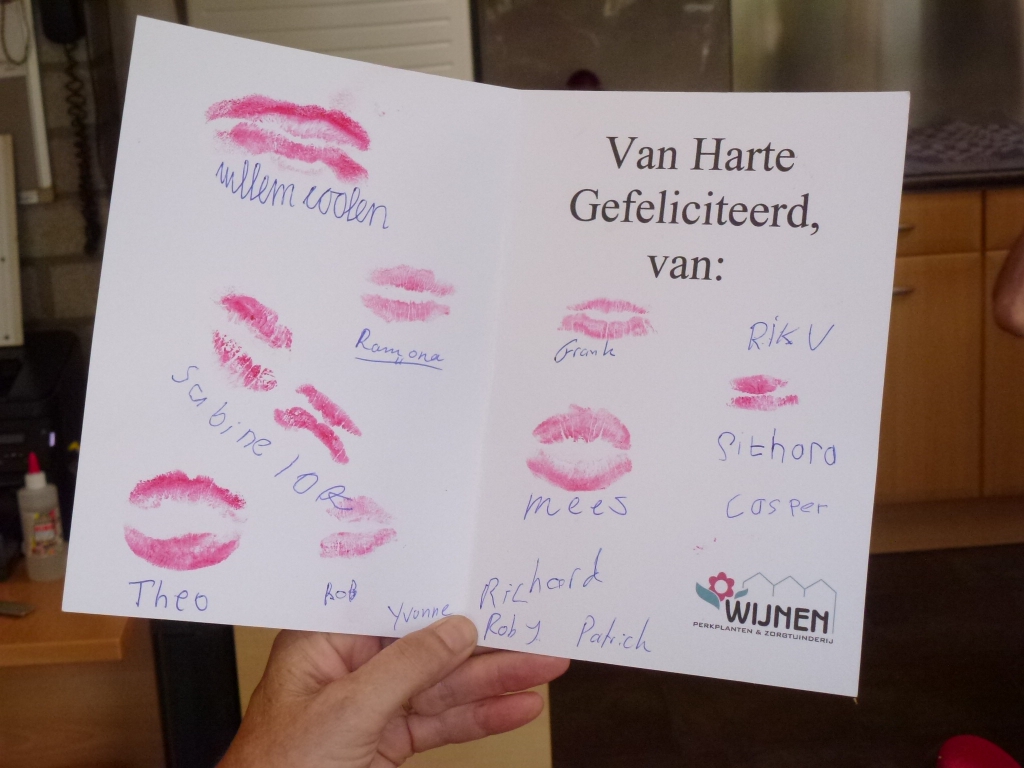 willem coolen
Ramona
Sabine
Theo
Rob
Yvonne
Van Harte
Gefeliciteerd,
van:
Frank
RiK V
mees
Sithara
Casper
Richard
Rob J
Patrick
WIJNEN
PERKPLANTEN & ZORGTUINDERIJ